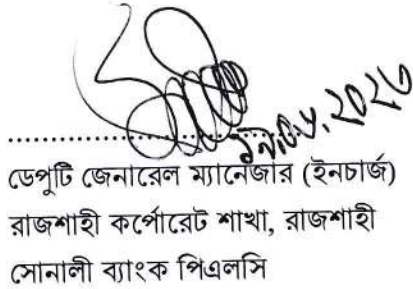 ডেপুটি জেনারেল ম্যানেজার (ইনচার্জ)
রাজশাহী কর্পোরেট শাখা, রাজশাহী
সোনালী ব্যাংক পিএলসি